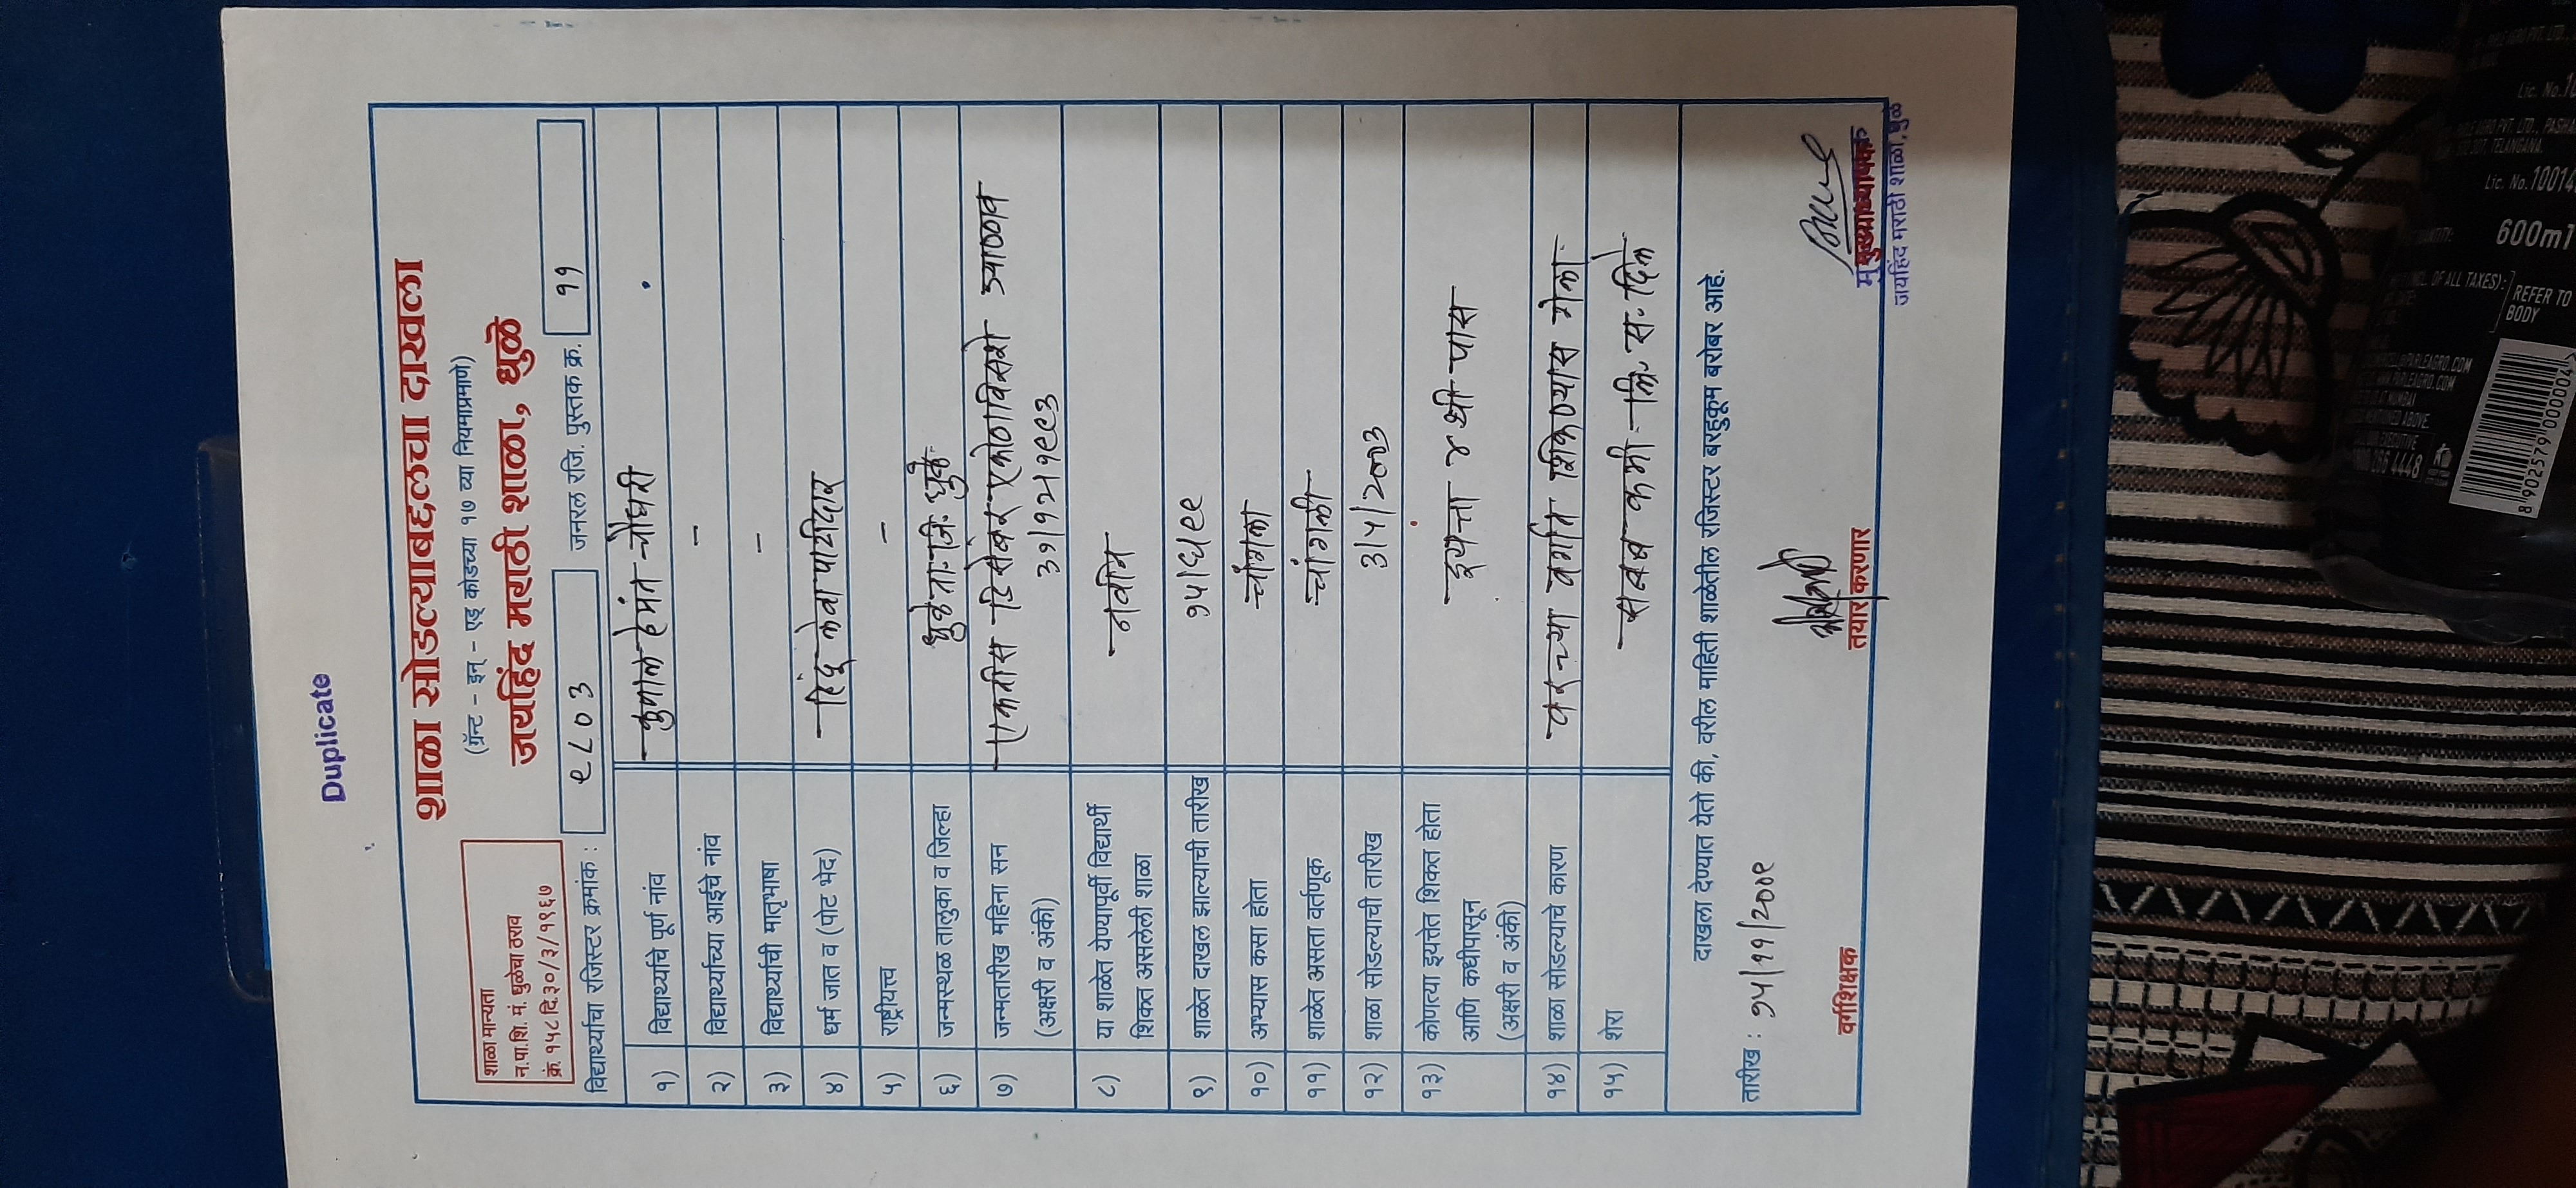 Duplicate
शाळा सोडल्याबद्दलचा दाखला
(ग्रॅन्ट - इन् - एड् कोडच्या १७ व्या नियमाप्रमाणे)
जयहिंद मराठी शाळा, धुळे
शाळा मान्यता
न.पा.शि. मं. धुळेचा ठराव
क्रं. १५८ दि.३०/३/१९६७
विद्यार्थ्याचा रजिस्टर क्रमांक : ९८०३ जनरल रजि. पुस्तक क्र. ११
१) विद्यार्थ्याचे पूर्ण नांव कुणाल हेमंत चौधरी
२) विद्यार्थ्याच्या आईचे नांव -
३) विद्यार्थ्याची मातृभाषा -
४) धर्म जात व (पोट भेद) हिंदू लेवा पाटीदार
५) राष्ट्रीयत्त्व -
६) जन्मस्थळ तालुका व जिल्हा धुळे ता. जि. धुळे
७) जन्मतारीख महिना सन एकतीस डिसेंबर एकोणाविसशे त्र्याण्णव
(अक्षरी व अंकी) ३१/१२/१९९३
८) या शाळेत येण्यापूर्वी विद्यार्थी नवीन
शिकत असलेली शाळा
९) शाळेत दाखल झाल्याची तारीख १५/६/९९
१०) अभ्यास कसा होता चांगला
११) शाळेत असता वर्तणूक चांगली
१२) शाळा सोडल्याची तारीख ३/५/२००३
१३) कोणत्या इयत्तेत शिकत होता इयत्ता ४ थी पास
आणि कधीपासून
(अक्षरी व अंकी)
१४) शाळा सोडल्याचे कारण वरच्या वर्गात शिकण्यास गेला.
१५) शेरा सबब कमी लि. स. दिले
दाखला देण्यात येतो की, वरील माहिती शाळेतील रजिस्टर बरहुकूम बरोबर आहे.
तारीख : १५/११/२००९
वर्गशिक्षक तयार करणार मुख्याध्यापक
जयहिंद मराठी शाळा, धुळे
Lic. No.
PARLE AGRO PVT. LTD.,
TELANGANA.
Lic. No. 10014
600ml
OF ALL TAXES):
REFER TO
BODY
8 902579 000004